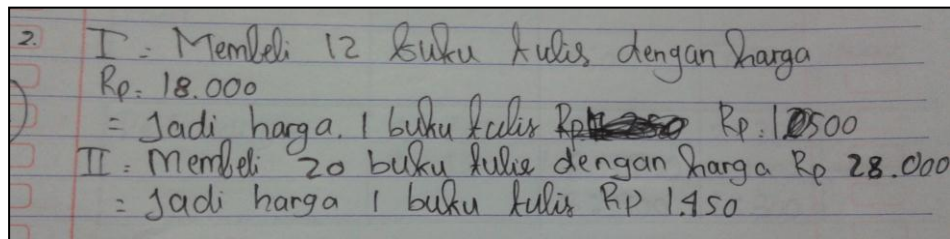 2. I = Membeli 12 buku tulis dengan harga
Rp. 18.000
= Jadi harga. 1 buku tulis Rp. 1.500
II = Membeli 20 buku tulis dengan harga Rp 28.000
= Jadi harga 1 buku tulis Rp 1.450